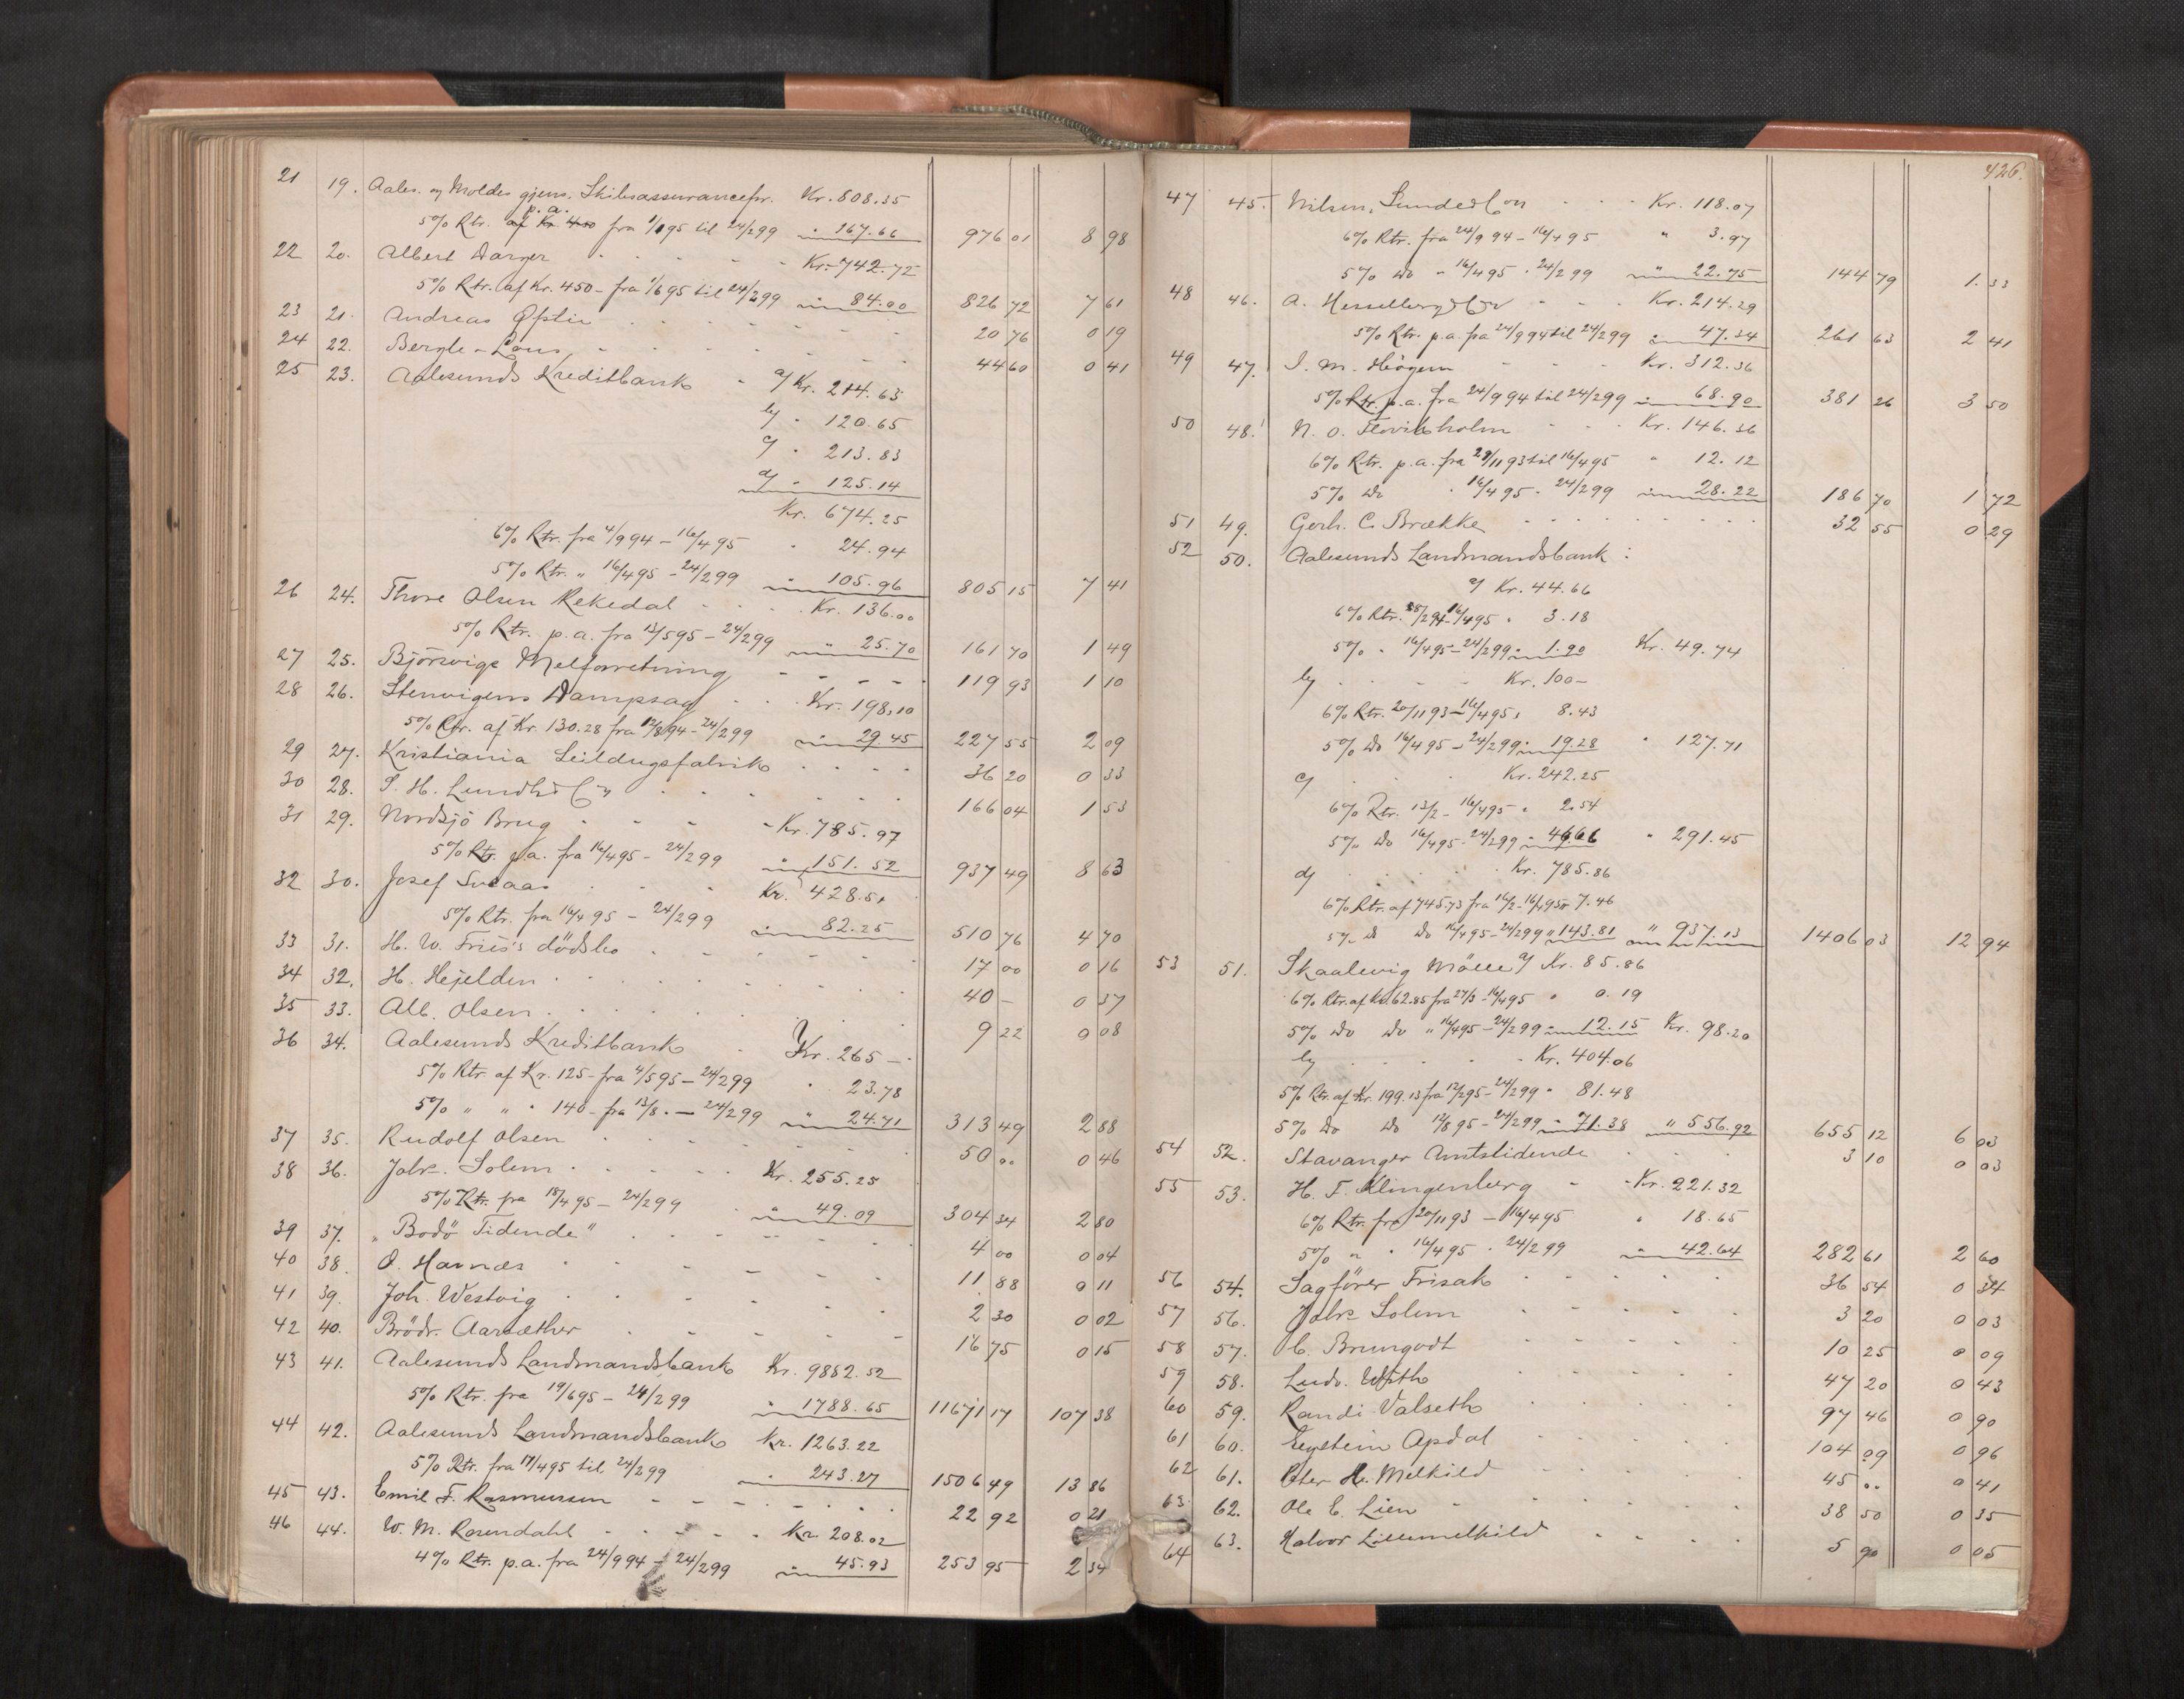 21 19. Aales. og Moldes gjens. Skibsassurancefor. Kr. 808.35
p.a.
5% Rtr. af Kr. 450 fra 1/1 95 til 24/2 99 " 167.66 976 01 8 98
22 20. Albert Warger Kr. 742.72
5% Rtr. af Kr. 450 - fra 1/6 95 til 24/2 99 " 84.00 826 72 7 61
23 21. Andreas 20 76 0 19
24 22. Bergh - 44 60 0 41
25 23. Aalesunds Kreditbank a/ Kr. 214.63
b/ " 120.65
c/ " 213.83
d/ " 125.14
Kr. 674.25
6% Rtr. fra 4/9 94 - 16/4 95 " 24.94
5% Rtr. " 16/4 95 - 24/2 99 " 105.96 805 15 7 41
26 24. Thore Olsen Rekedal Kr. 136.00
5% Rtr. p.a. fra 13/5 95 - 24/2 99 " 25.70 161 70 1 49
27 25. Björsvigs Melforretning 119 93 1 10
28 26. Stenvigens Dampsag Kr. 198,10
5% Rtr. af Kr. 130.28 fra 12/8 94 - 24/2 99 " 29.45 227 55 2 09
29 27. Kristiania Seildugsfabrik 36 20 0 33
30 28. S. H. Lundh & Co 166 04 1 53
31 29. Nordsjö Brug Kr. 785.97
5% Rtr. p.a. fra 16/4 95 - 24/2 99 " 151.52 937 49 8 63
32 30. Josef Svaas Kr. 428.51
5% Rtr. fra 16/4 95 - 24/2 99 " 82.25 510 76 4 70
33 31. H. W. Friis's dödsbo 17 00 0 16
34 32. H. Hejelden 40 - 0 37
35 33. Alb. Olsen 9 22 0 08
36 34. Aalesunds Kreditbank Kr. 265 -
5% Rtr. af Kr. 125 - fra 4/5 95 - 24/2 99 " 23.78
5% " " " 140 - fra 13/8 " - 24/2 99 " 24.71 313 49 2 88
37 35. Rudolf Olsen 50 00 0 46
38 36. Jakr. Solem Kr. 255.25
5% Rtr. fra 18/4 95 - 24/2 99 " 49.09 304 34 2 80
39 37. "Bodö Tidende" 4 00 0 04
40 38. O. Havnæs 11 88 0 11
41 39. Joh. Westvig 2 30 0 02
42 40. Brödr. Aarsæther 16 75 0 15
43 41. Aalesunds Landmandsbank Kr. 9882.52
5% Rtr. fra 19/6 95 - 24/2 99 " 1788.65 11671 17 107 38
44 42. Aalesunds Landmandsbank Kr. 1263.22
5% Rtr. fra 17/4 95 til 24/2 99 " 243.27 1506 49 13 86
45 43. Emil F. Rasmussen 22 92 0 21
46 44. W. M. Rosendahl Kr. 208.02
4% Rtr. p.a. fra 24/9 94 - 24/2 99 " 45.93 253 95 2 34
426.
47 45. Nilsen, Sunde & Con Kr. 118.07
6% Rtr. fra 24/9 94 - 16/4 95 " 3.97
5% Do " 16/4 95 " 24/2 99 " 22.75 144 79 1.33
48 46. A. Hesselberg & Co Kr. 214.29
5% Rtr. p.a. fra 24/9 94 til 24/2 99 " 47.34 261 63 2 41
49 47. J. M. Högem Kr. 312.36
5% Rtr. p.a. fra 24/9 94 til 24/2 99 " 68.90 381 26 3 50
50 48. N. O. Flovikholm Kr. 146.36
6% Rtr. p.a. fra 29/11 93 til 16/4 95 " 12.12
5% Do " 16/4 95 - 24/2 99 " 28.22 186 70 1 72
51 49. Gerh. C. Brække 32 55 0 29
52 50. Aalesunds Landmandsbank :
a/ Kr. 44.66
6% Rtr. 28/2 94 - 16/4 95 " 3.18
5% " 16/4 95 - 24/2 99 " 1.90 Kr. 49.74
b/ Kr. 100 -
6% Rtr. 20/11 93 - 16/4 95 " 8.43
5% Do 16/4 95 - 24/2 99 " 19.28 " 127.71
c/ Kr. 242.25
6% Rtr. 13/2 - 16/4 95 " 2.54
5% Do 16/4 95 - 24/2 99 " 46.66 " 291.45
d/ Kr. 785.86
6% Rtr. af 745.73 fra 16/2 - 16/4 95 " 7.46
5% " Do 16/4 95 - 24/2 99 " 143.81 " 937.13 1406 03 12 94
53 51. Skaalevig Mölle a/ Kr. 85.86
6% Rtr. af Kr. 62.85 fra 27/3 - 16/4 95 " 0.19
5% Do Do " 16/4 95 - 24/2 99 " 12.15 Kr. 98.20
b/ Kr. 404.06
5% Rtr. af Kr. 199.13 fra 12/2 95 - 24/2 99 " 81.48
5% Do Do 12/8 95 - 24/2 99 " 71.38 " 556.92 655 12 6 03
54 52. Stavanger Amtstidende 3 10 0 03
55 53. H. F. Klingenberg Kr. 221.32
6% Rtr. fra 20/11 93 - 16/4 95 " 18.65
5% " " 16/4 95 " 24/2 99 " 42.64 282 61 2 60
56 54. Sagförer Frisak 36 54 0 34
57 56. Jakr. Solem 3 20 0 03
58 57. C. Brungodt 10 25 0 09
59 58. Ludv. With 47 20 0 43
60 59. Randi Valseth 97 46 0 90
61 60. Eystein Apdal 104 09 0 96
62 61. Peter H. Melkild 45 00 0 41
63 62. Ole E. Lien 38 50 0 35
64 63. Halvor Lillemelkild 5 90 0 05